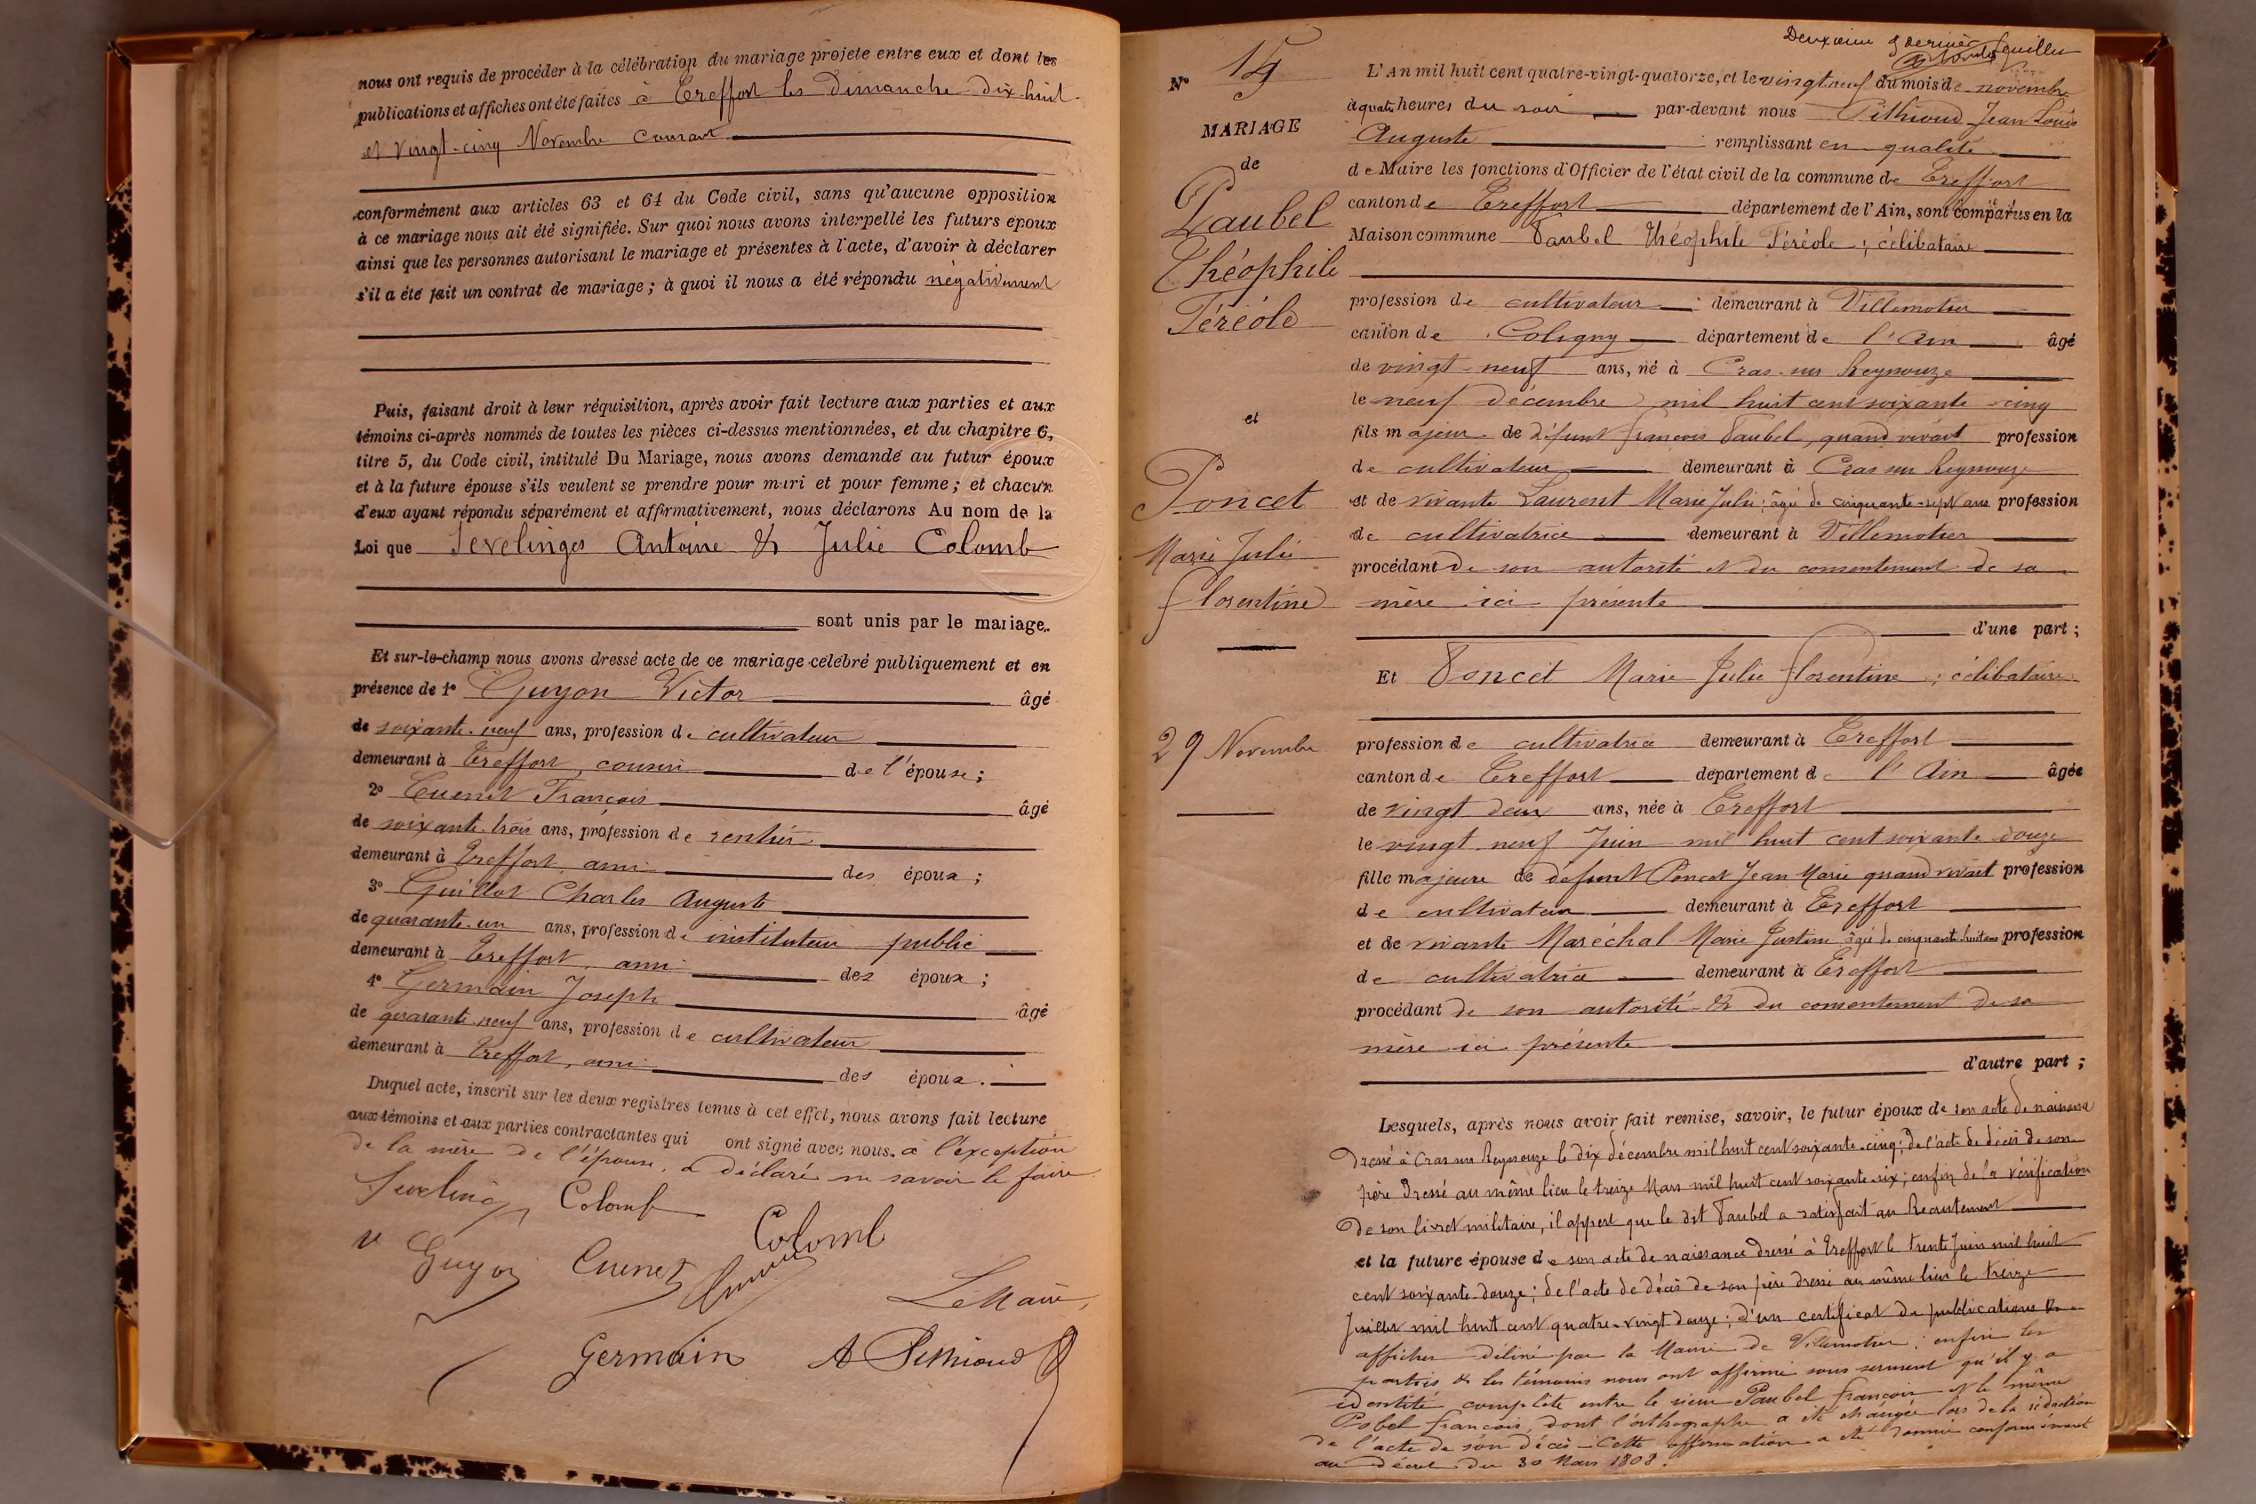 nous ont requis de procéder à la célébration du mariage projeté entre eux et dont les
publications et affiches ont été faites à Treffort les Dimanche dix-huit
et vingt-cinq Novembre courant
conformément aux articles 63 et 64 du Code civil, sans qu'aucune opposition
à ce mariage nous ait été signifiée. Sur quoi nous avons interpellé les futurs époux
ainsi que les personnes autorisant le mariage et présentes à l'acte, d'avoir à déclarer
s'il a été fait un contrat de mariage ; à quoi il nous a été répondu négativement
Puis, faisant droit à leur réquisition, après avoir fait lecture aux parties et aux
témoins ci-après nommés de toutes les pièces ci-dessus mentionnées, et du chapitre 6,
titre 5, du Code civil, intitulé Du Mariage, nous avons demandé au futur époux
et à la future épouse s'ils veulent se prendre pour mari et pour femme ; et chacun
d'eux ayant répondu séparément et affirmativement, nous déclarons Au nom de la
Loi que Sevelinges Antoine & Julie Colomb
sont unis par le mariage.
Et sur-le-champ nous avons dressé acte de ce mariage célébré publiquement et en
présence de 1° Guyon Victor âgé
de soixante-neuf ans, profession de cultivateur
demeurant à Treffort, cousin de l'épouse ;
2° Cuenet François âgé
de soixante-trois ans, profession de rentier
demeurant à Treffort, ami des époux ;
3° Guillot Charles Auguste
de quarante-un ans, profession de instituteur public
demeurant à Treffort, ami des époux ;
4° Germain Joseph âgé
de quarante-neuf ans, profession de cultivateur
demeurant à Treffort, ami des époux.
Duquel acte, inscrit sur les deux registres tenus à cet effet, nous avons fait lecture
aux témoins et aux parties contractantes qui ont signé avec nous. à l'exception
de la mère de l'épouse, a déclaré ne savoir le faire
Sevelinges Colomb
V Guyon Cuenet Colomb
Le Maire,
Germain A Pethioud
Deuxième & dernier feuillet
N° 14
MARIAGE
de
Paubel
Théophile
Féréole
et
Poncet
Marie Julie
Florentine
29 Novembre
L'An mil huit cent quatre-vingt-quatorze, et le vingt neuf du mois de novembre
à quatre heures du soir par-devant nous Pethioud Jean Louis
Auguste remplissant en qualité
de Maire les fonctions d'Officier de l'état civil de la commune de Treffort
canton de Treffort département de l'Ain, sont comparus en la
Maison commune Paubel Théophile Féréole ; célibataire
profession de cultivateur demeurant à Villemotier
canton de Coligny département de l'Ain âgé
de vingt-neuf ans, né à Cras-sur Reyssouze
le neuf décembre mil huit cent soixante-cinq
fils majeur de défunt François Paubel, quand vivait profession
de cultivateur demeurant à Cras sur Reyssouze
et de vivante Laurent Marie Julie ; âgée de cinquante-sept ans profession
de cultivatrice demeurant à Villemotier
procédant de son autorité et du consentement de sa
mère ici présente
d'une part ;
Et Poncet Marie Julie Florentine ; célibataire
profession de cultivatrice demeurant à Treffort
canton de Treffort département de l'Ain âgée
de vingt deux ans, née à Treffort
le vingt-neuf Juin mil huit cent soixante-douze
fille majeure de défunt Poncet Jean Marie quand vivait profession
de cultivateur demeurant à Treffort
et de vivante Maréchal Marie Justine âgée de cinquante-huit ans profession
de cultivatrice demeurant à Treffort
procédant de son autorité & du consentement de sa
mère ici présente
d'autre part ;
Lesquels, après nous avoir fait remise, savoir, le futur époux de son acte de naissance
dressé à Cras sur Reyssouze le dix décembre mil huit cent soixante-cinq ; de l'acte de décès de son
père dressé au même lieu le treize Mars mil huit cent soixante-six ; enfin de la vérification
de son livret militaire, il appert que le dit Paubel a satisfait au Recrutement
et la future épouse de son acte de naissance dressé à Treffort le trente Juin mil huit
cent soixante-douze ; de l'acte de décès de son père dressé au même lieu le treize
Juillet mil huit cent quatre-vingt douze ; d'un certificat de publications &
affiches délivré par la Mairie de Villemotier ; enfin les
parties & les témoins nous ont affirmé sous serment qu'il y a
identité complète entre le sieur Paubel François et le même
Pobel François, dont l'orthographe a été changée lors de la rédaction
de l'acte de son décès. Cette affirmation a été donnée conformément
au décret du 30 Mars 1808.